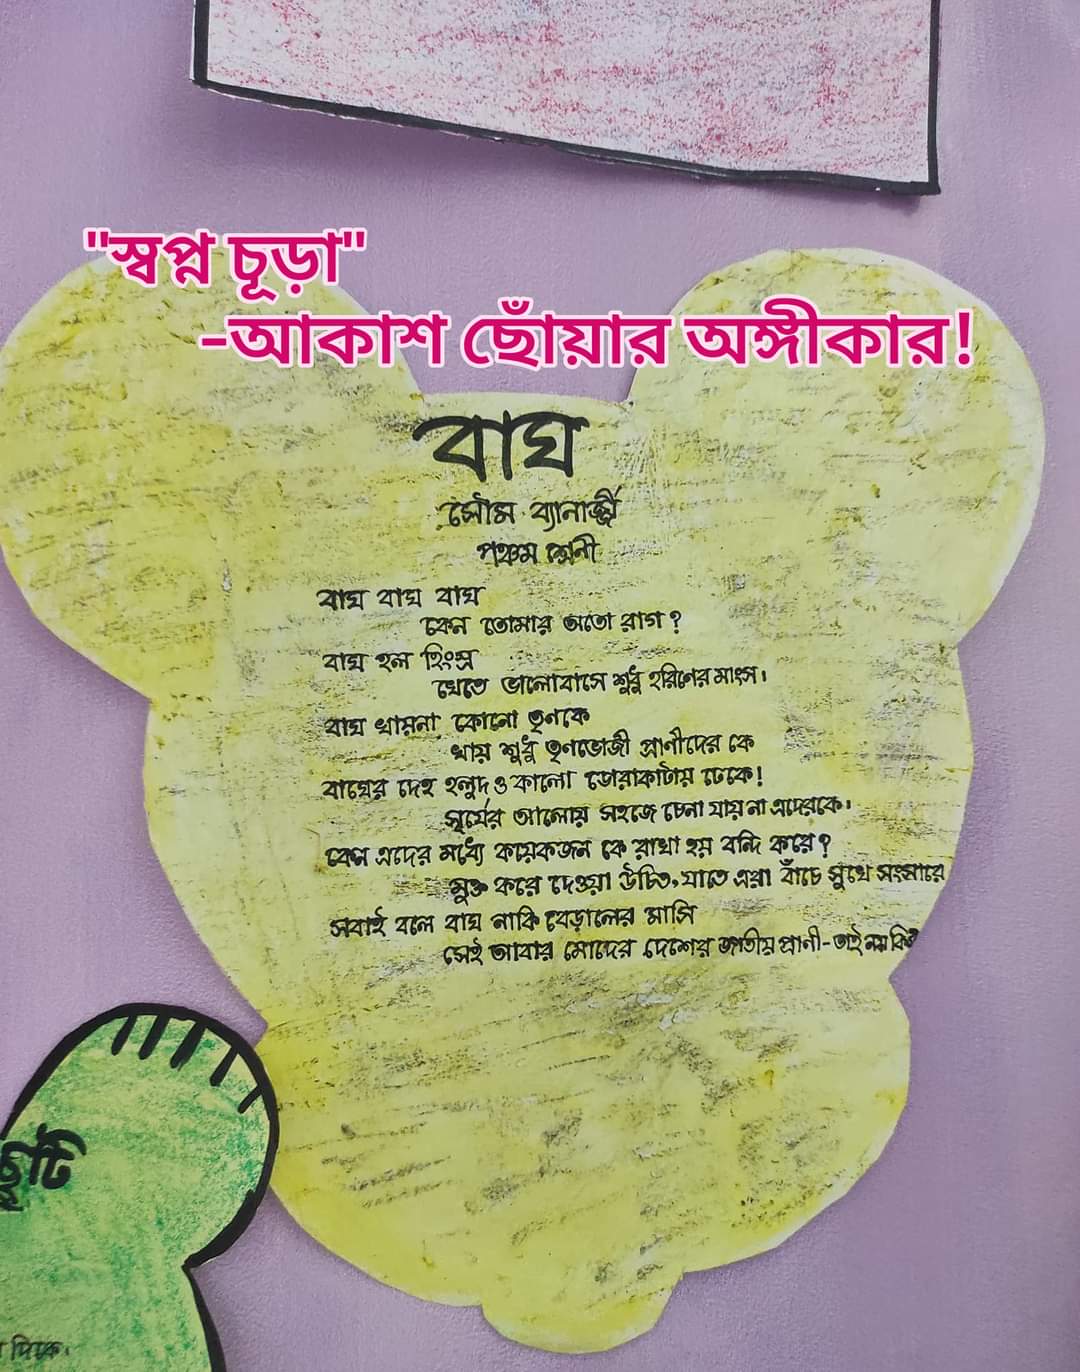 "স্বপ্ন চূড়া"
-আকাশ ছোঁয়ার অঙ্গীকার!
বাঘ
সৌম ব্যানার্জ্জী
পঞ্চম শ্রেনী
বাঘ বাঘ বাঘ
কেন তোমার অতো রাগ?
বাঘ হল হিংস্র
খেতে ভালোবাসে শুধু হরিনের মাংস।
বাঘ খায়না কোনো তৃনকে
খায় শুধু তৃনভোজী প্রাণীদের কে
বাঘের দেহ হলুদ ও কালো ডোরাকাটায় ঢেকে!
সূর্যের আলোয় সহজে চেনা যায় না এদেরকে।
কেন এদের মধ্যে কয়েকজন কে রাখা হয় বন্দি করে?
মুক্ত করে দেওয়া উচিত, যাতে এরা বাঁচে সুখে সংসারে
সবাই বলে বাঘ নাকি বেড়ালের মাসি
সেই আবার মোদের দেশের জাতীয় প্রানী-তাই নয় কি?
ছুটি
দিকে।